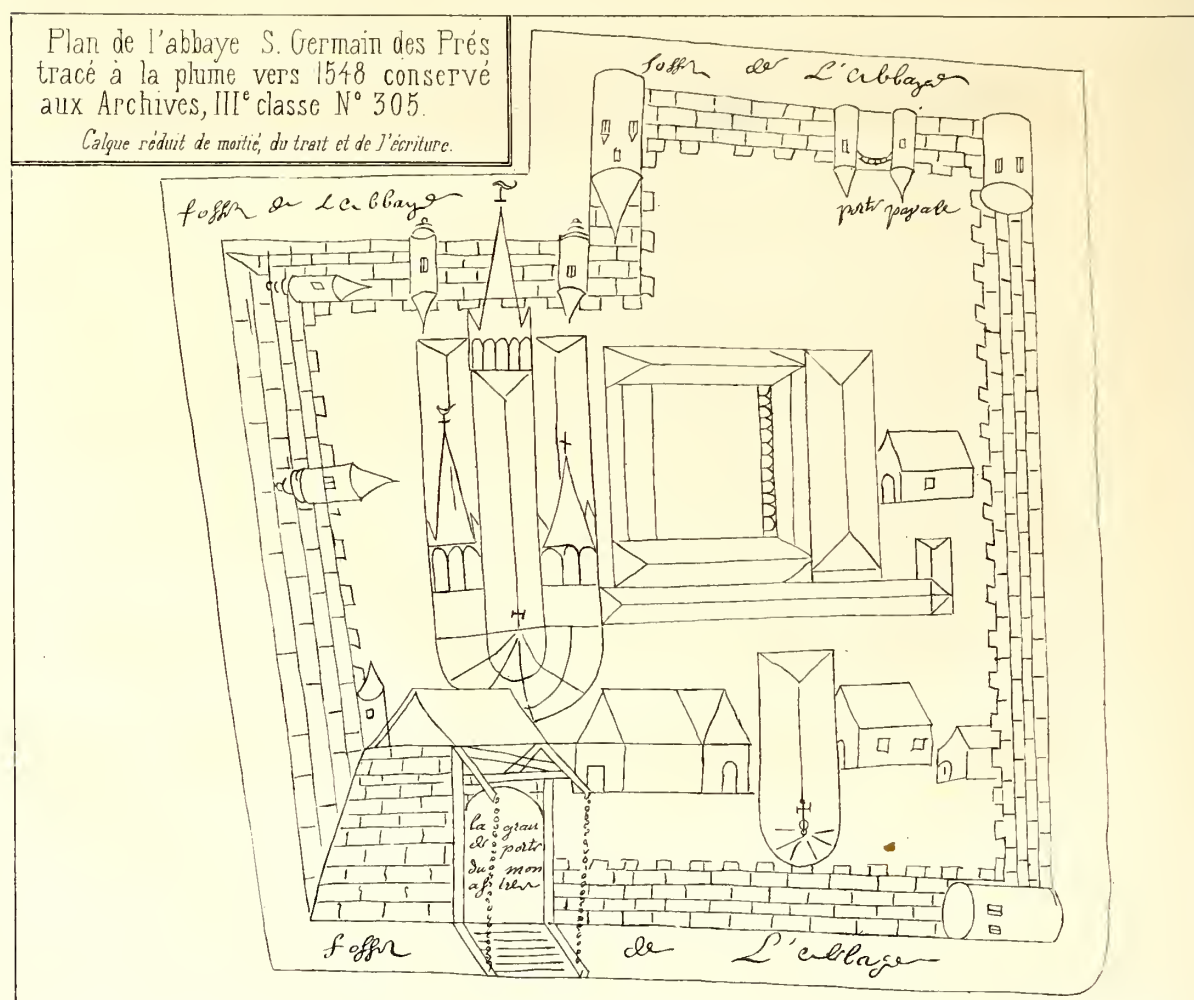 Plan de l'abbaye S. Germain des Prés
tracé à la plume vers 1548 conservé
aux Archives, IIIᵉ classe N° 305.
Calque réduit de moitié, du trait et de l'écriture.
fossez de L'abbaye
fossez de l'abbaye
porte papale
la gran
de porte
du mon
astere
fossez de L'abbaye